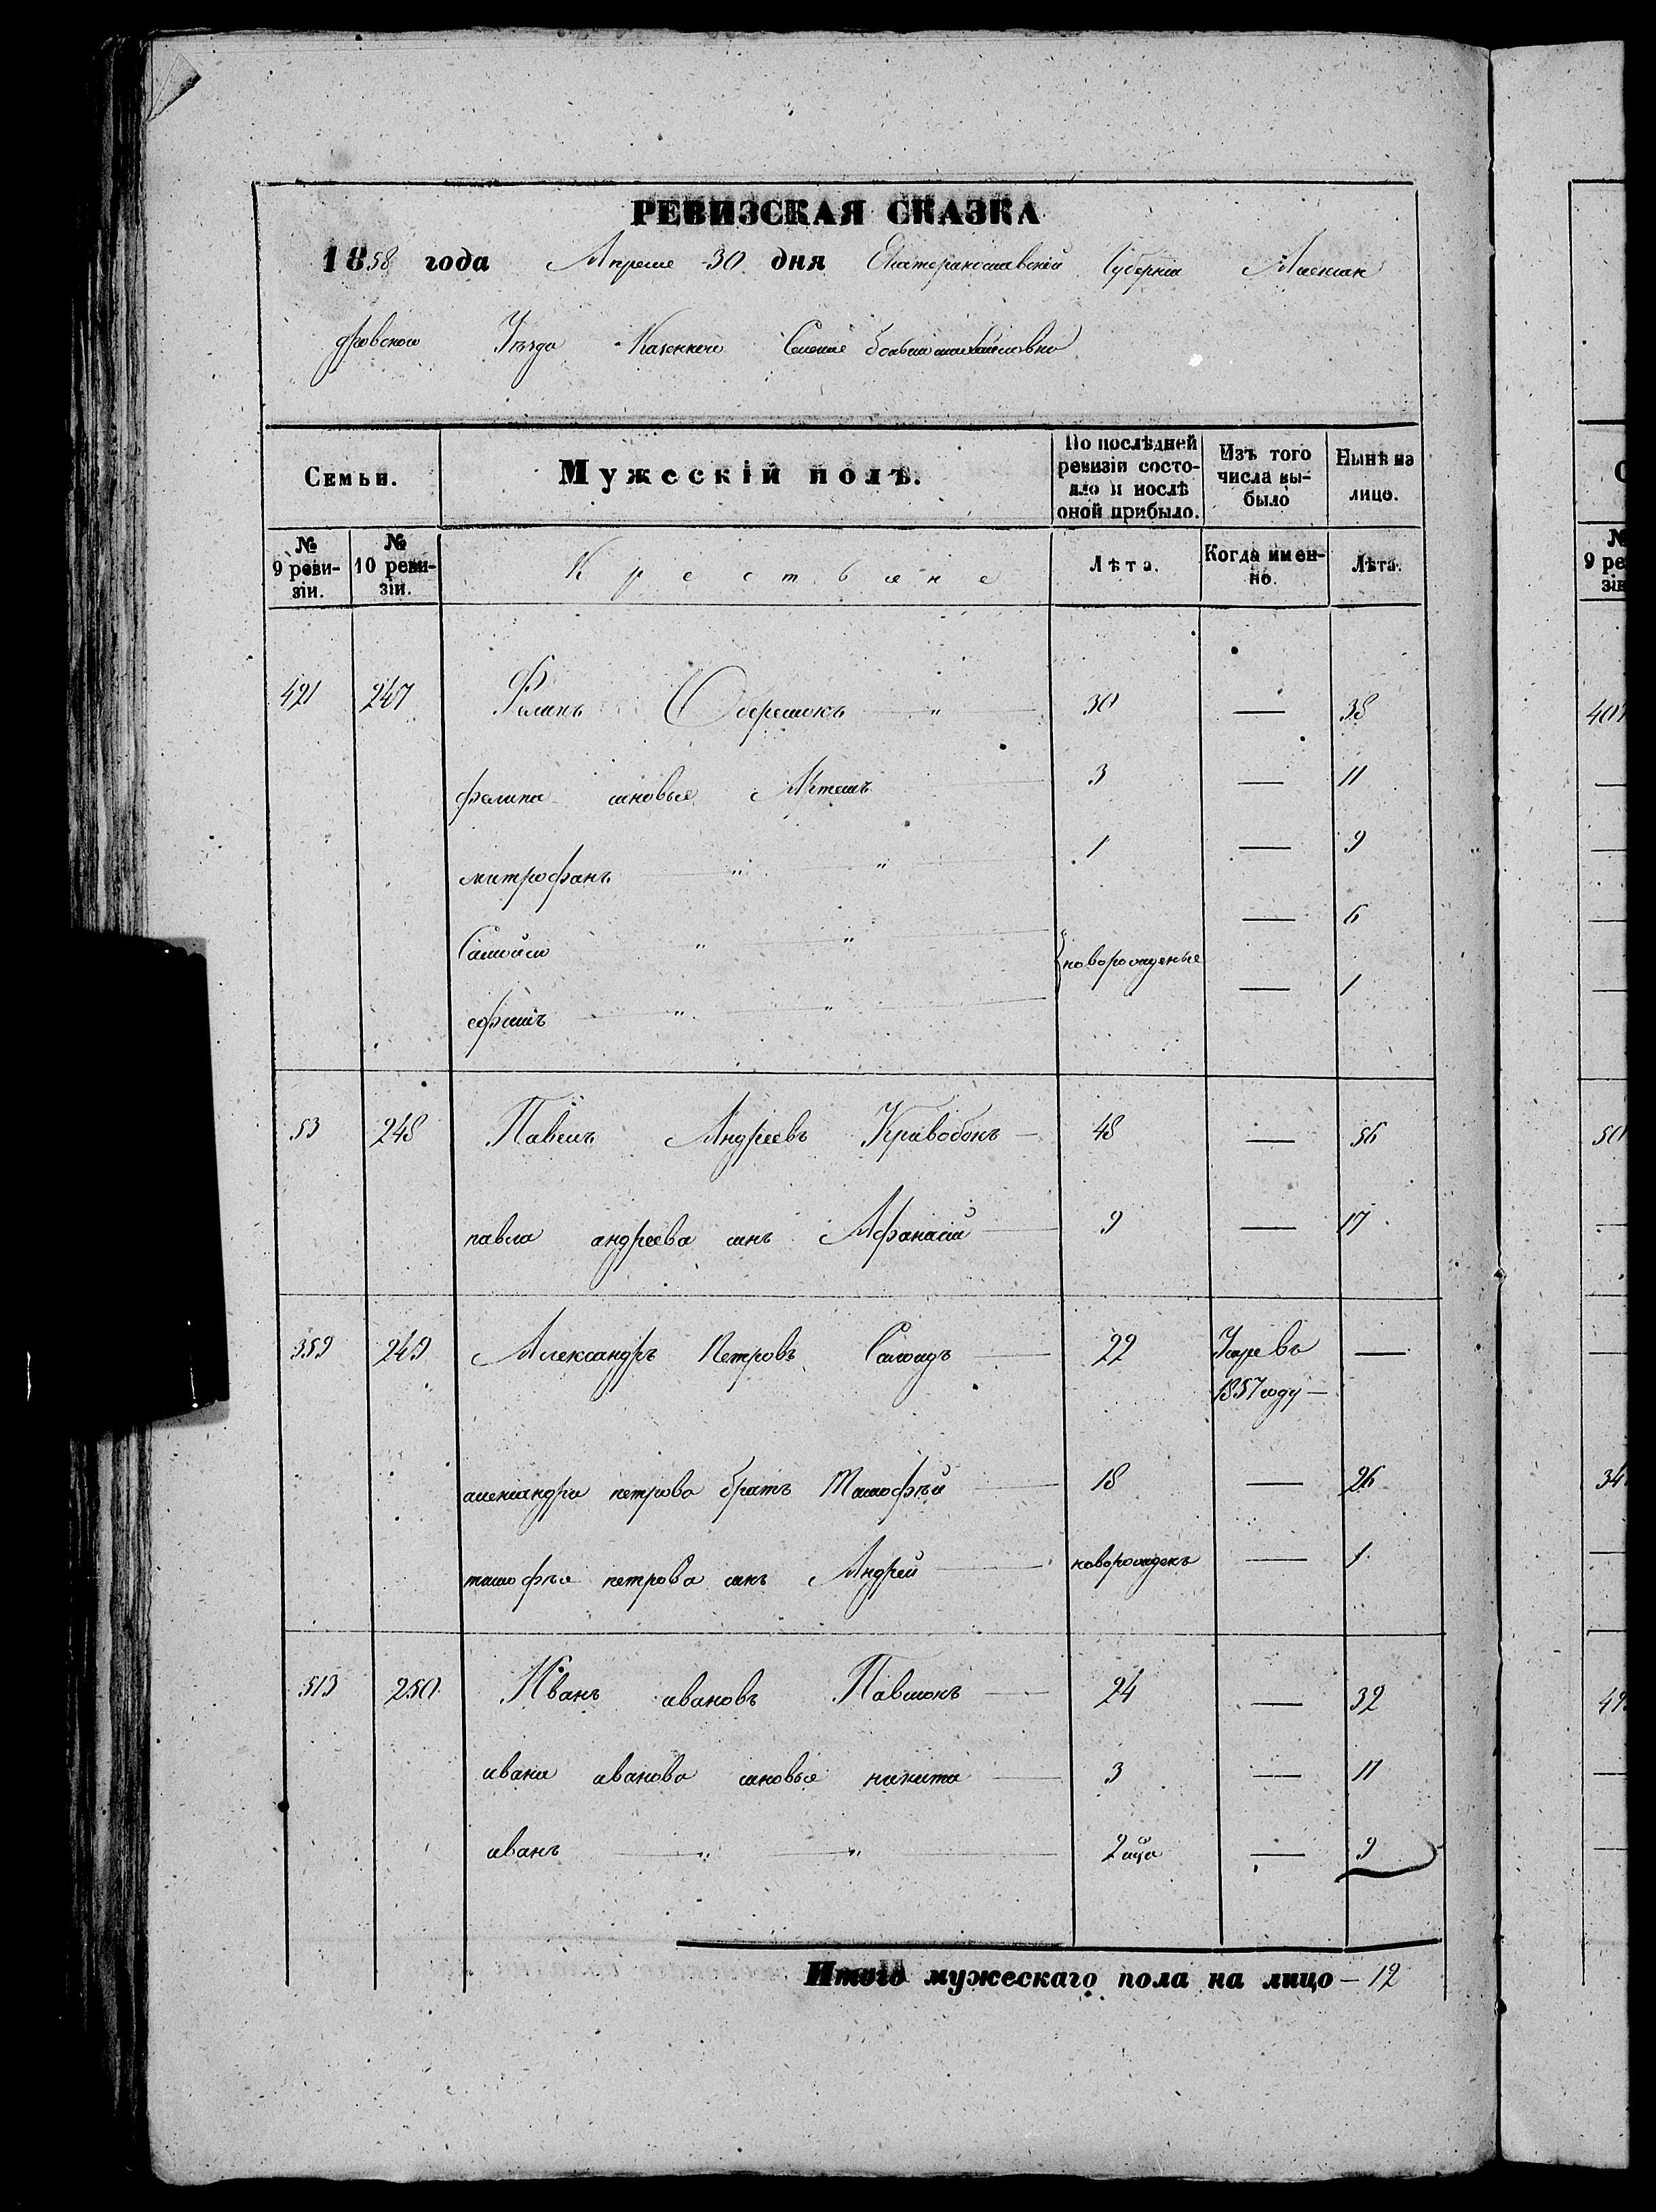 РЕВИЗСКАЯ СКАЗКА
1858 года Апреля 30 дня Екатеринославской Губернiи Алексан
дровского Уезда Казенного Селенiя
Семьи.
Мужескiй полъ.
По послѣдней ревизiи состояло и послѣ оной прибыло.
Изъ того числа выбыло
Нынѣ на лицо.
№ 9 ревизiи.
№ 10 ревизiи.
Крестьяне
Лѣта.
Когда именно.
Лѣта.
421 247 Филипъ 30 — 38
филипа сыновья 3 — 11
митрофанъ " " 1 — 9
Самойло " " новорожденые — 6
ефимъ " " — 1
53 248 Павелъ Андреевъ Кривобокъ — 48 — 56
павла андреева сынъ Афанасiй — 9 — 17
359 249 Александръ Петровъ — 22 Умре въ —
1857 году —
александра петрова братъ Тимофѣй — 18 — 26
тимофѣя петрова сынъ Андрей — новорожденъ — 1
513 250 Иванъ ивановъ Павлюкъ — 24 — 32
ивана иванова сыновья никита — 3 — 11
иванъ " " — — 9
Итого мужескаго пола на лицо — 12
40
50
34
49